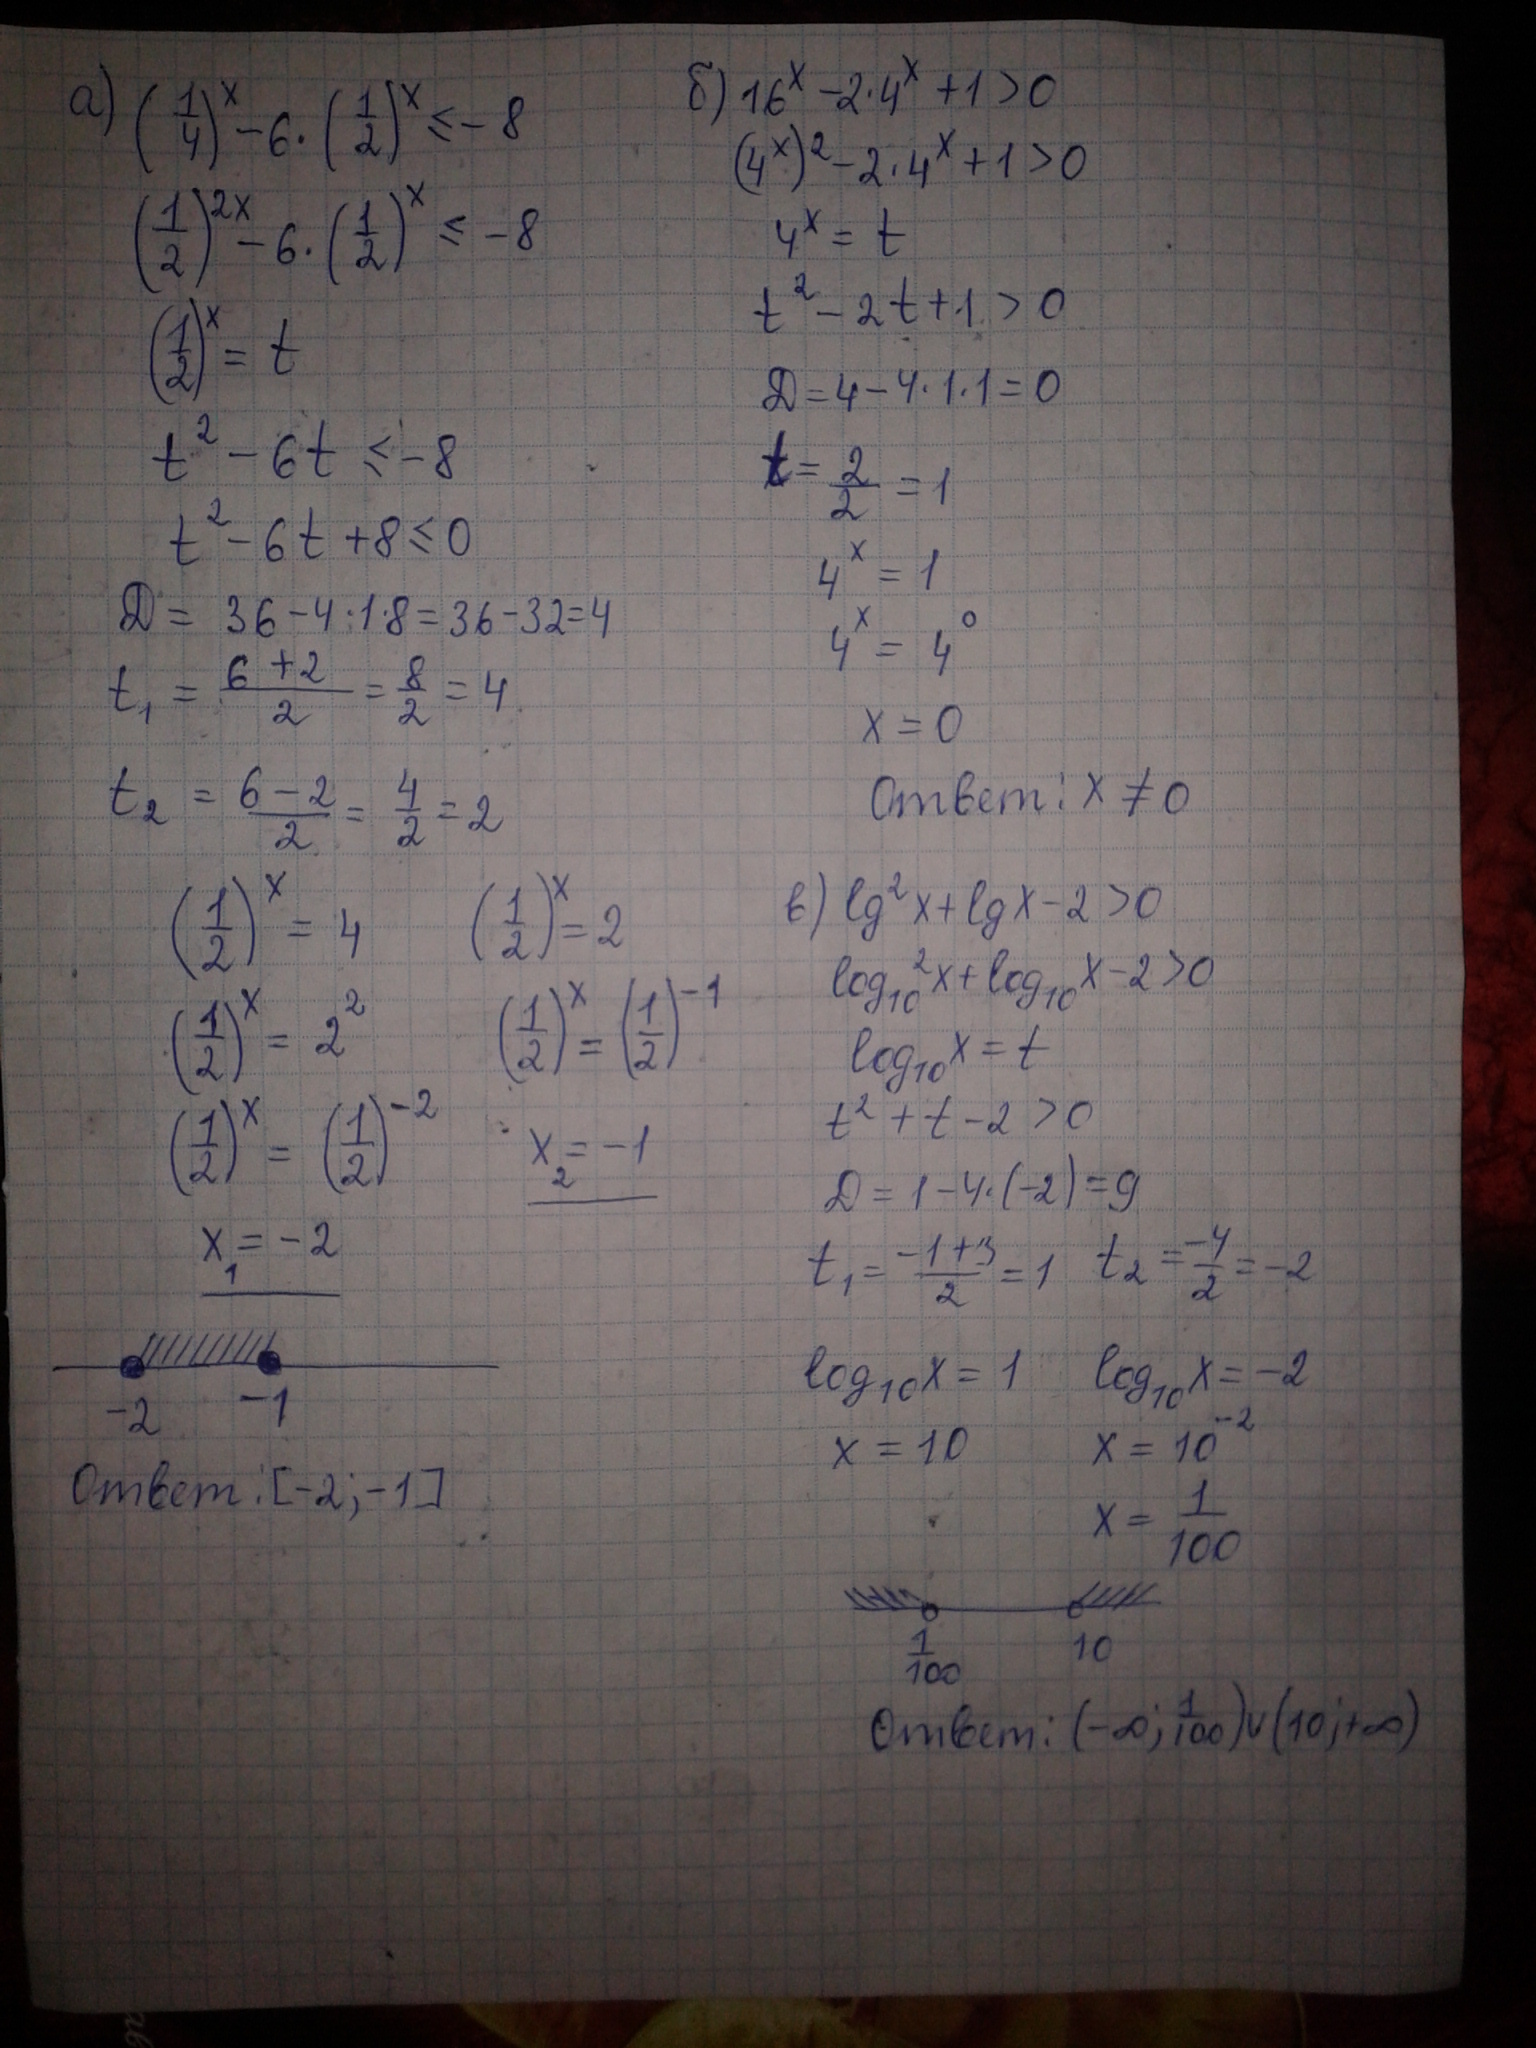 а) (1/4)^x - 6·(1/2)^x ≤ -8
(1/2)^2x - 6·(1/2)^x ≤ -8
(1/2)^x = t
t² - 6t ≤ -8
t² - 6t + 8 ≤ 0
D = 36 - 4·1·8 = 36 - 32 = 4
t₁ = (6+2)/2 = 8/2 = 4
t₂ = (6-2)/2 = 4/2 = 2
(1/2)^x = 4 (1/2)^x = 2
(1/2)^x = 2² (1/2)^x = (1/2)^-1
(1/2)^x = (1/2)^-2 x₂ = -1
x₁ = -2
-2 -1
Ответ: [-2; -1]
б) 16^x - 2·4^x + 1 > 0
(4^x)² - 2·4^x + 1 > 0
4^x = t
t² - 2t + 1 > 0
D = 4 - 4·1·1 = 0
t = 2/2 = 1
4^x = 1
4^x = 4^0
x = 0
Ответ: x ≠ 0
в) lg²x + lgx - 2 > 0
log₁₀²x + log₁₀x - 2 > 0
log₁₀x = t
t² + t - 2 > 0
D = 1 - 4·(-2) = 9
t₁ = (-1+3)/2 = 1 t₂ = -4/2 = -2
log₁₀x = 1 log₁₀x = -2
x = 10 x = 10^-2
x = 1/100
1/100 10
Ответ: (-∞; 1/100)∪(10; +∞)